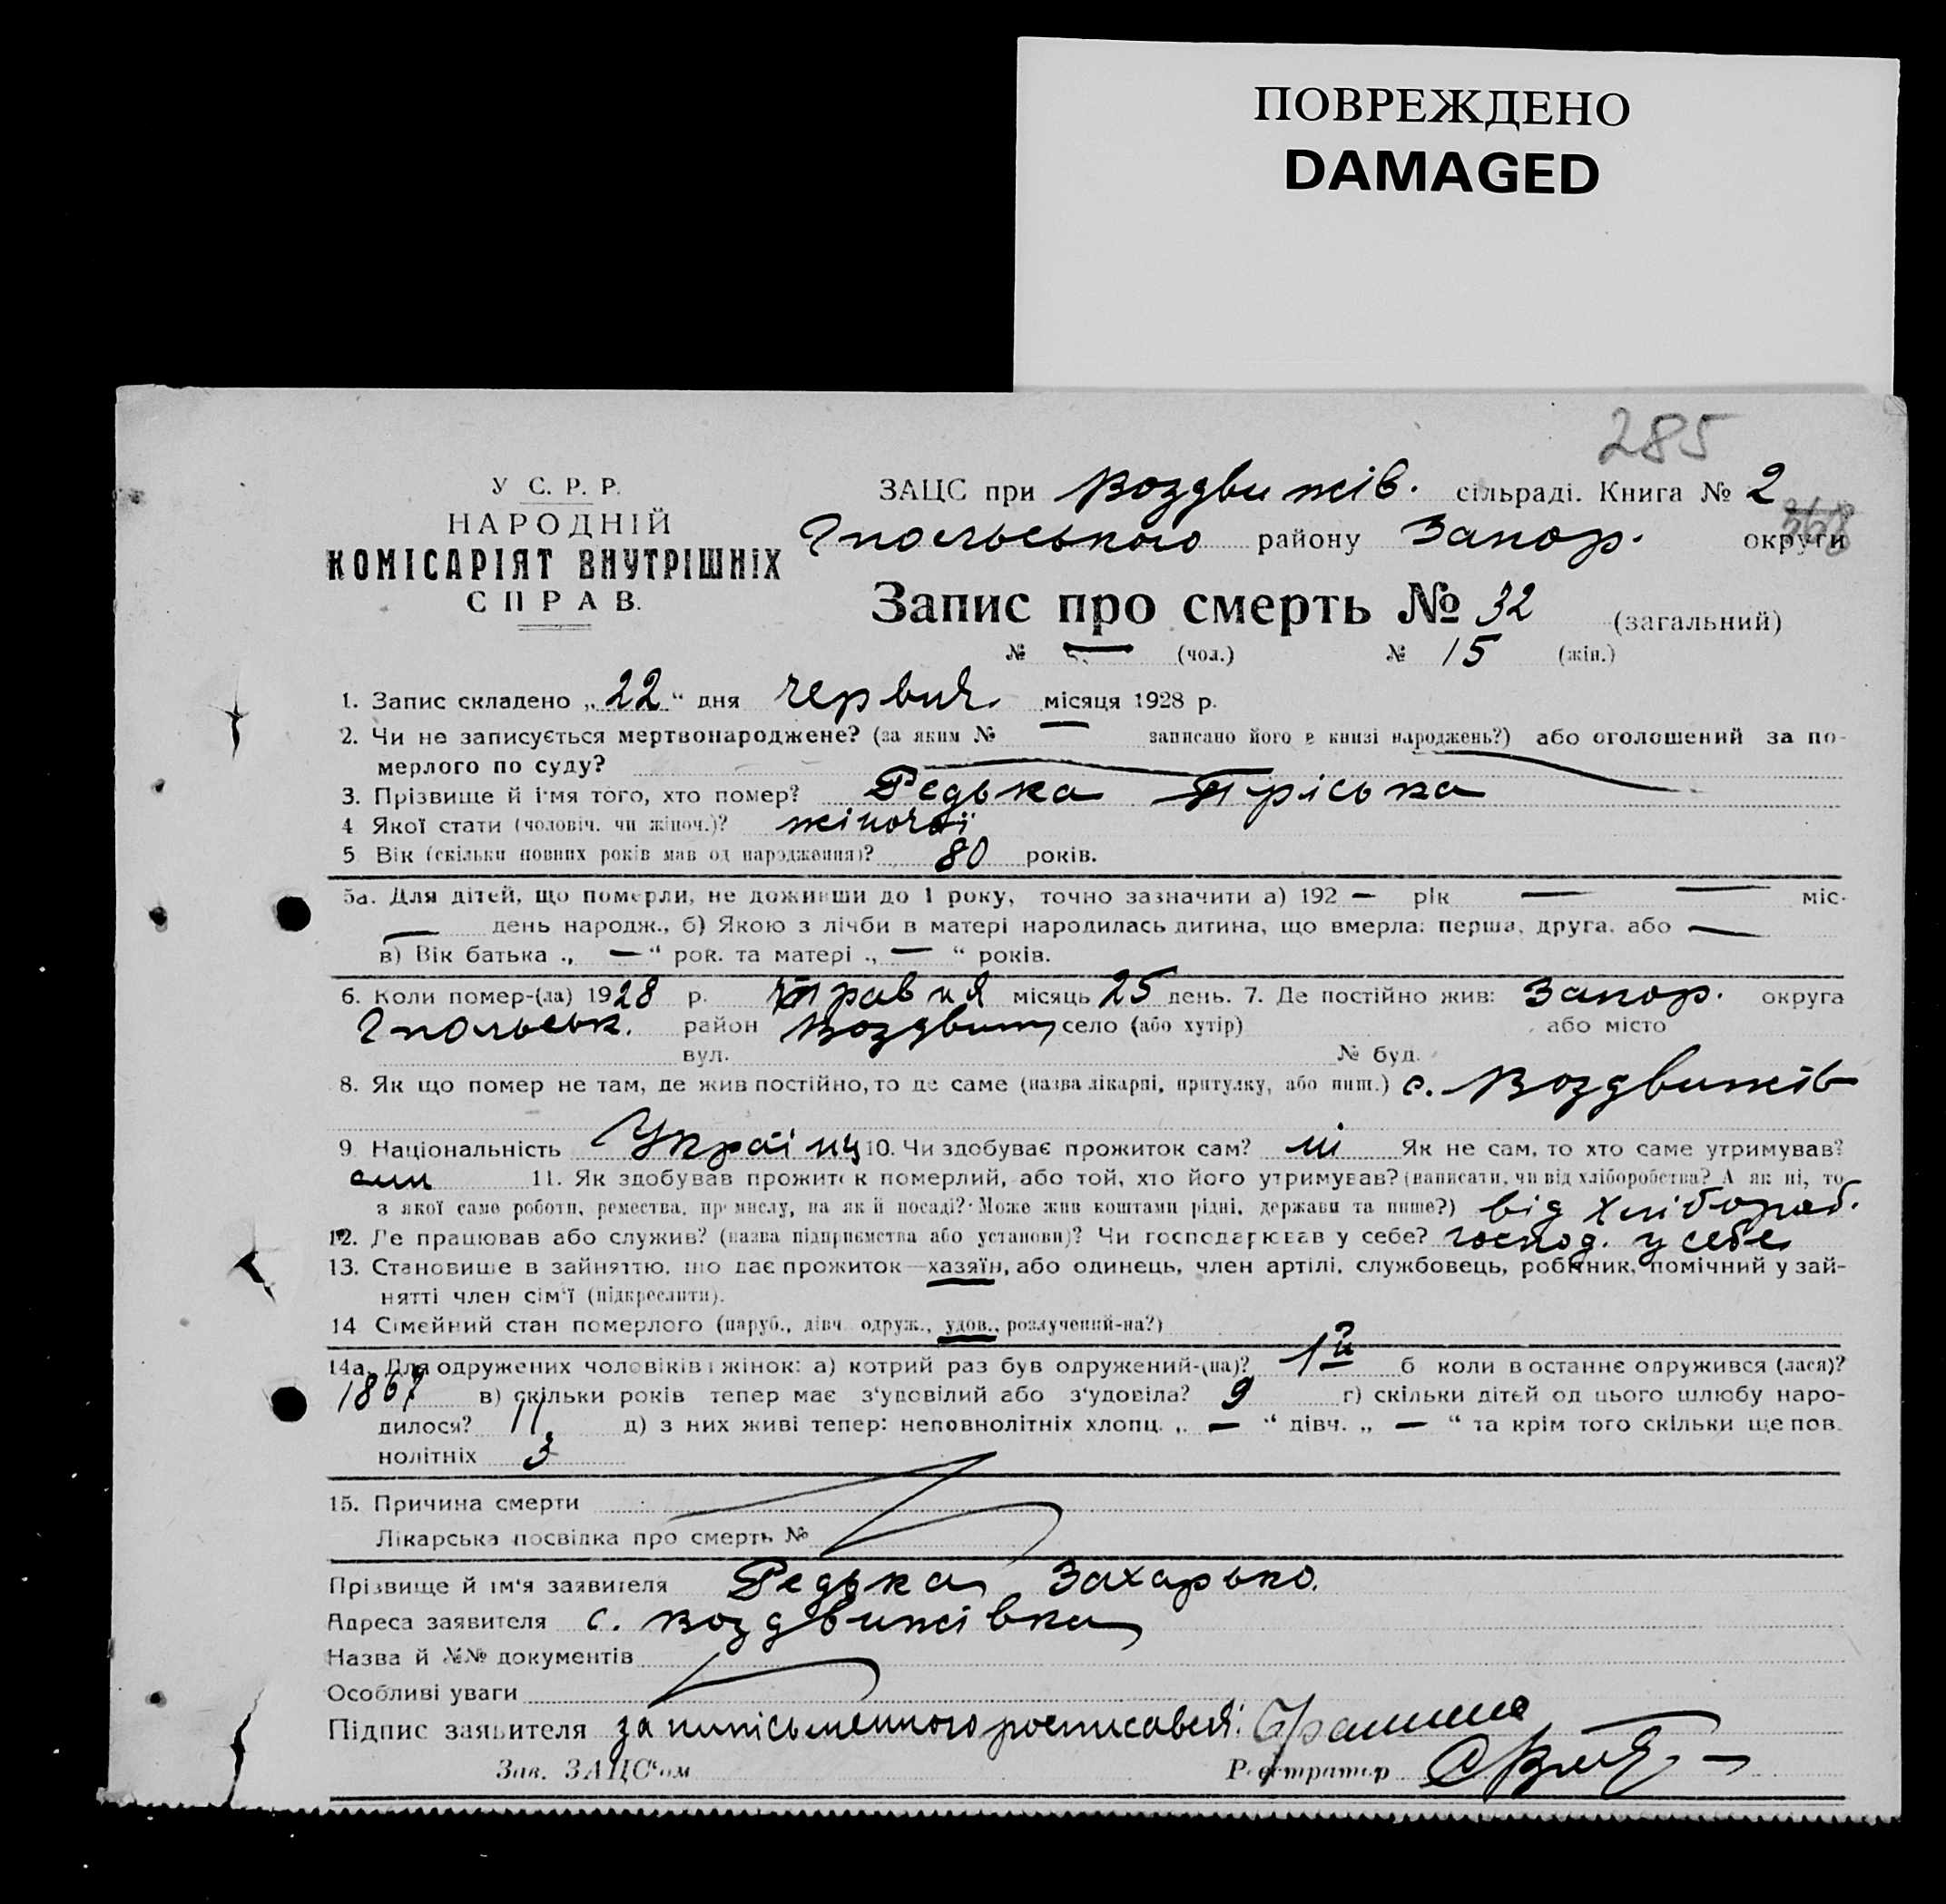 ПОВРЕЖДЕНО
DAMAGED
285
У С. Р. Р.
НАРОДНІЙ
КОМІСАРІЯТ ВНУТРІШНІХ
СПРАВ.
ЗАЦС при Воздвижів. сільраді. Книга № 2
368
Гпольського району Запор. округи
Запис про смерть № 32 (загальний)
№ — (чол.) № 15 (жін.)
1. Запис складено „22“ дня червня місяця 1928 р.
2. Чи не записується мертвонароджене? (за яким № — записано його в книзі народжень?) або оголошений за по-
мерлого по суду?
3. Прізвище й ім'я того, хто помер? Редька Пріська
4 Якої стати (чоловіч. чи жіноч.)? жіночої
5 Вік (скільки повних років мав од народження)? 80 років.
5а. Для дітей, що померли, не доживши до 1 року, точно зазначити а) 192 — рік — — міс.
— день народж., б) Якою з лічби в матері народилась дитина, що вмерла: перша, друга, або —
в) Вік батька „ — “ рок. та матері „ — “ років.
6. Коли помер-(ла) 1928 р. травня місяць 25 день. 7. Де постійно жив: Запор. округа
Гпольськ. район Воздвиж село (або хутір) або місто
вул. № буд.
8. Як що помер не там, де жив постійно, то де саме (назва лікарні, притулку, або инш.) с. Воздвижів
9 Національність Украінц 10. Чи здобуває прожиток сам? ні Як не сам, то хто саме утримував?
син 11. Як здобував прожиток померлий, або той, хто його утримував? (написати, чи від хліборобства? А як ні, то
з якої саме роботи, ремества, промислу, на якій посаді? Може жив коштами рідні, держави та инше?) від хлібороб.
12. Де працював або служив? (назва підприємства або установи)? Чи господарював у себе? господ. у себе
13. Становище в зайняттю, що дає прожиток—хазяїн, або одинець, член артілі, службовець, робітник, помічний у зай-
нятті член сім'ї (підкреслити).
14 Сімейний стан померлого (паруб., дівч. одруж., удов., розлучений-на?)
14а. Для одружених чоловіків і жінок: а) котрий раз був одружений-(на)? 1й б коли востаннє одружився (лася)?
1867 в) скільки років тепер має з'удовілий або з'удовіла? 9 г) скільки дітей од цього шлюбу наро-
дилося? 11 д) з них живі тепер: неповнолітніх хлопц. „ — “ дівч. „ — “ та крім того скільки ще пов.
нолітніх 3
15. Причина смерти
Лікарська посвідка про смерть №
Прізвище й ім'я заявителя Редька Захарько.
Адреса заявителя с. Воздвижівка
Назва й №№ документів
Особливі уваги
Підпис заявителя за ниписьменного росписавсь:
Зав. ЗАЦС'ом Реєстратор